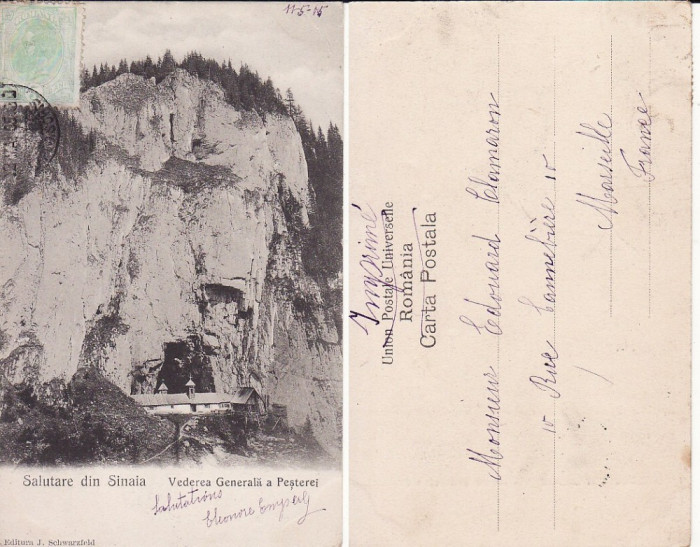 11-5-15
Salutare din Sinaia
Vederea Generală a Peșterei
Salutations
Eleonore
Editura J. Schwarzfeld
Imprimé
Union Postale Universelle
România
Carta Postala
Monsieur Edouard Clamaron
10 Rue Cannebière 10
Marseille
France